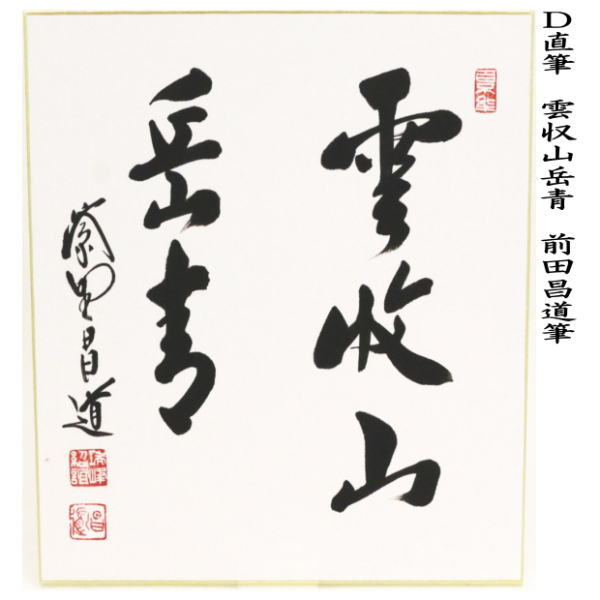 D直筆 雲収山岳青 前田昌道筆
雲收山
岳青
紫野昌道